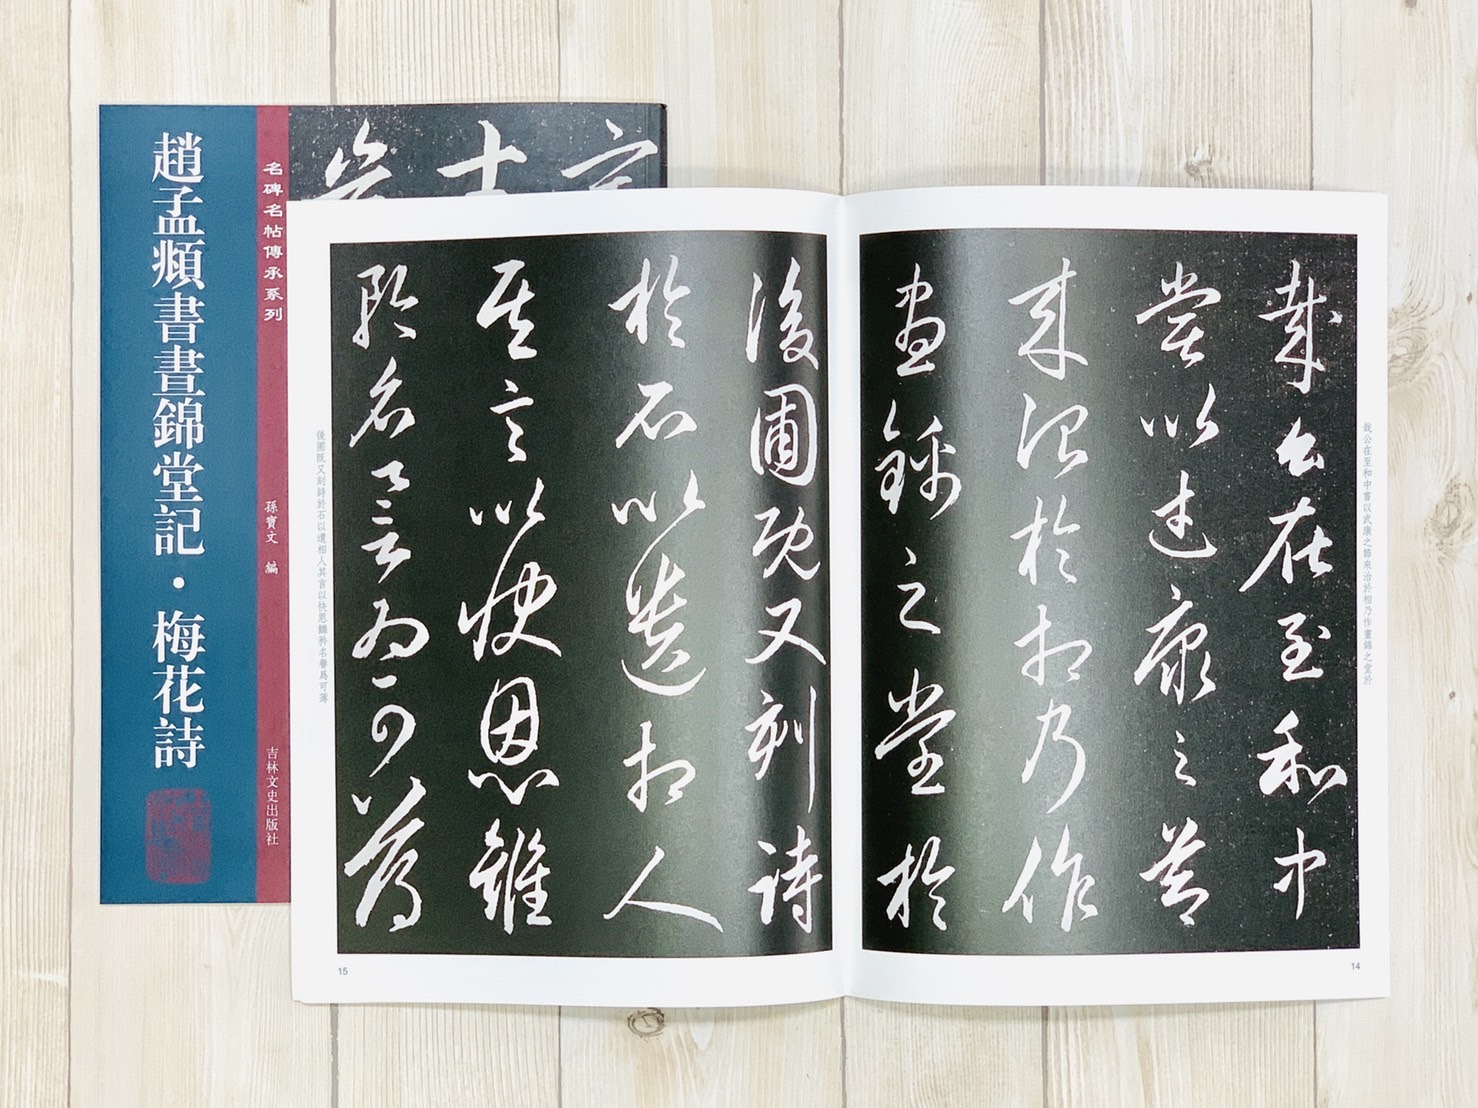 趙孟頫書晝錦堂記・梅花詩
名碑名帖傳承系列
孫寶文 編
吉林文史出版社
哉公在至和中嘗以武康之節來治於相乃作晝錦之堂於
哉公在至和中
嘗以武康之節
來治於相乃作
晝錦之堂於
14
後圃既又刻詩
於石以遺相人
其言以快恩讎
矜名譽為可薄
後圃既又刻詩於石以遺相人其言以快恩讎矜名譽爲可薄
15